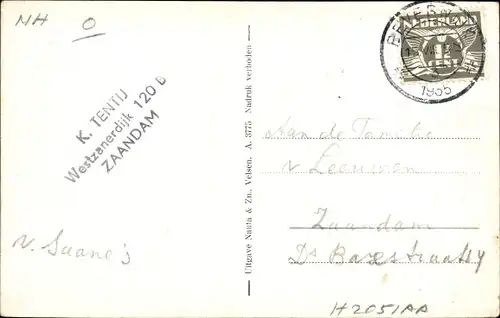 NH O
K. TENTIJ
Westzanerdijk 120 B
ZAANDAM
v. Saane's
Uitgave Nauta & Zn., Velsen. A. 3775 Nadruk verboden
1935
NEDERLAND
Aan de Familie
v Leeuwen
Zaandam
Ds
H2051AA